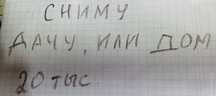 СНИМУ
ДАЧУ, ИЛИ ДОМ
20 тыс